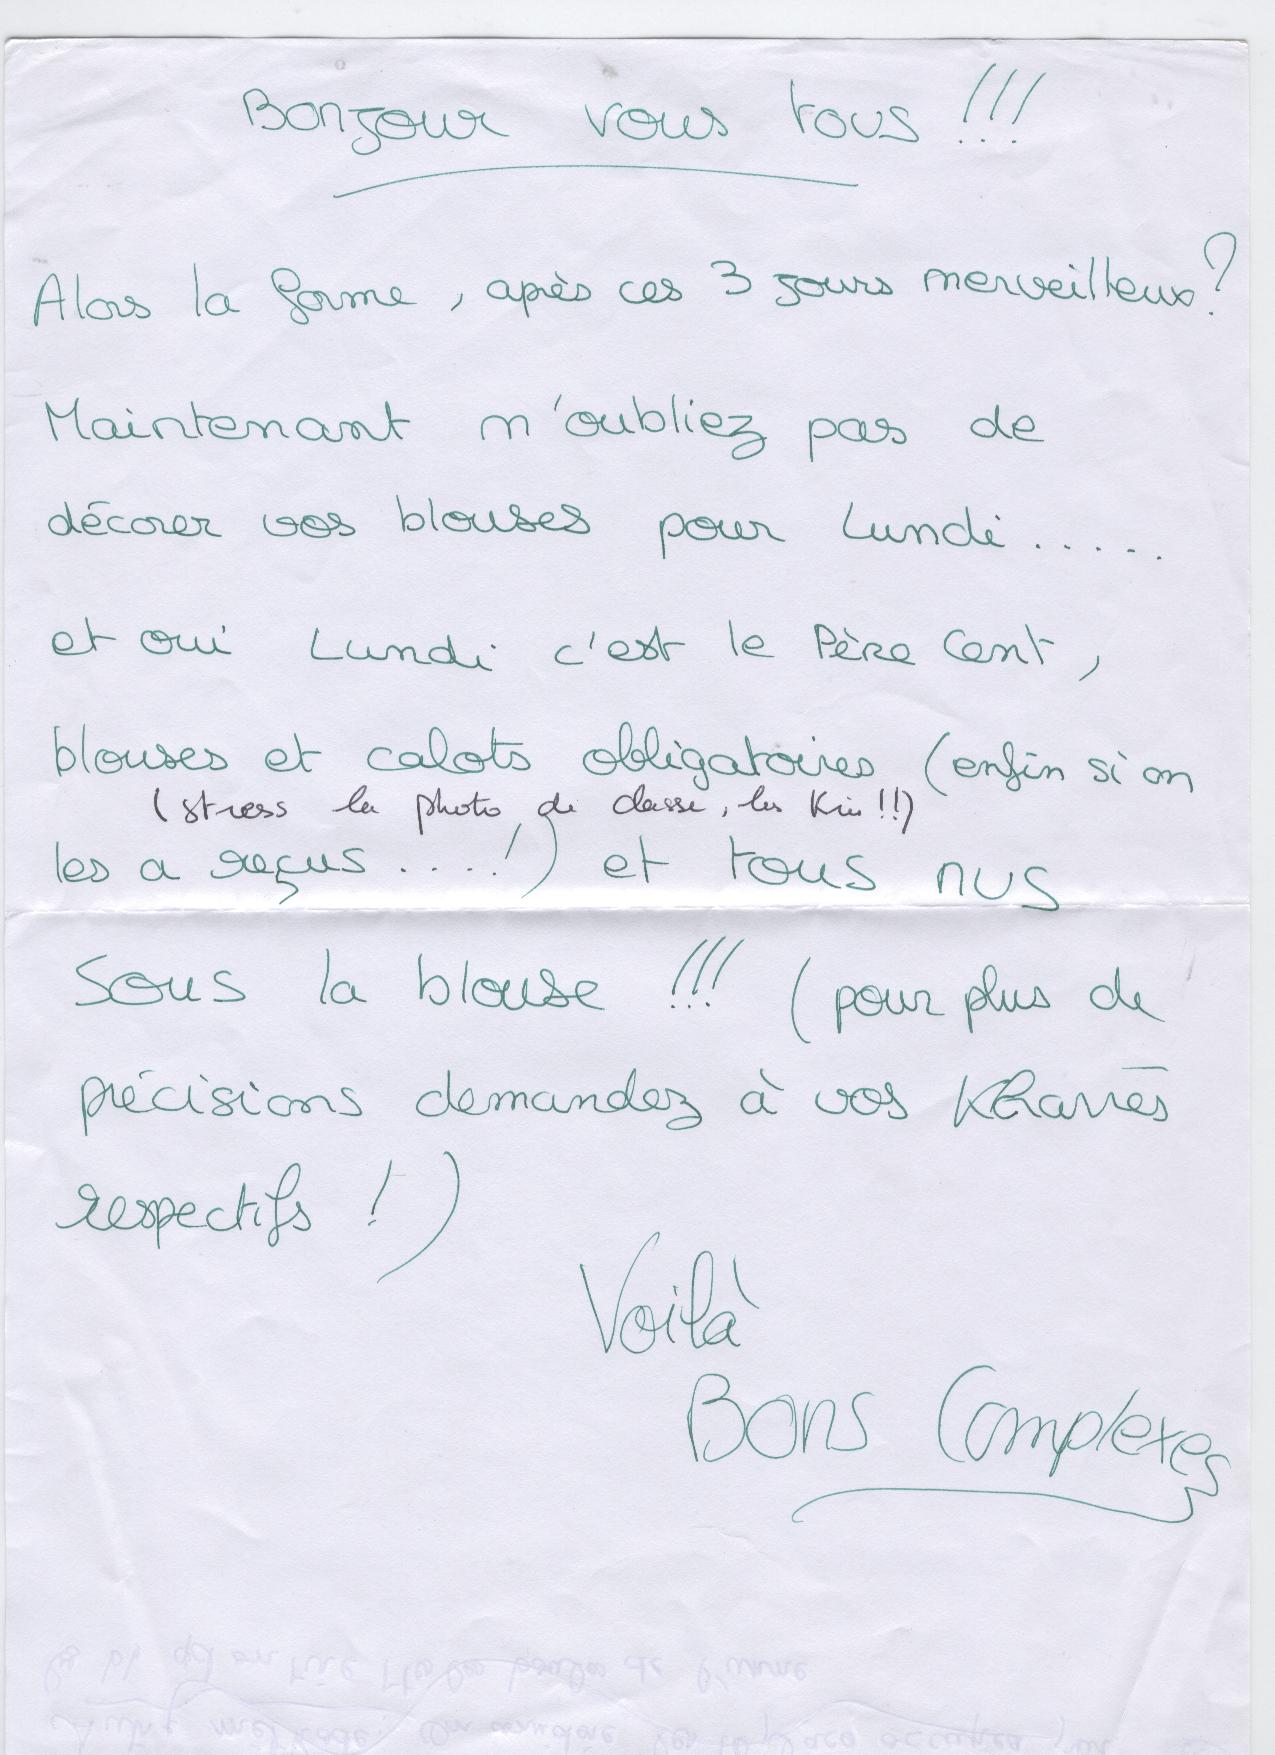 Bonjour vous tous !!!
Alors la forme, après ces 3 jours merveilleux ?
Maintenant n'oubliez pas de
décorer vos blouses pour Lundi .....
et oui Lundi c'est le Père Cent,
blouses et calots obligatoires (enfin si on
(stress la photo de classe, les Kiu !!)
les a reçus ....!) et tous nus
Sous la blouse !!! (pour plus de
précisions demandez à vos Kharrēs
respectifs !)
Voilà
Bons Complexes